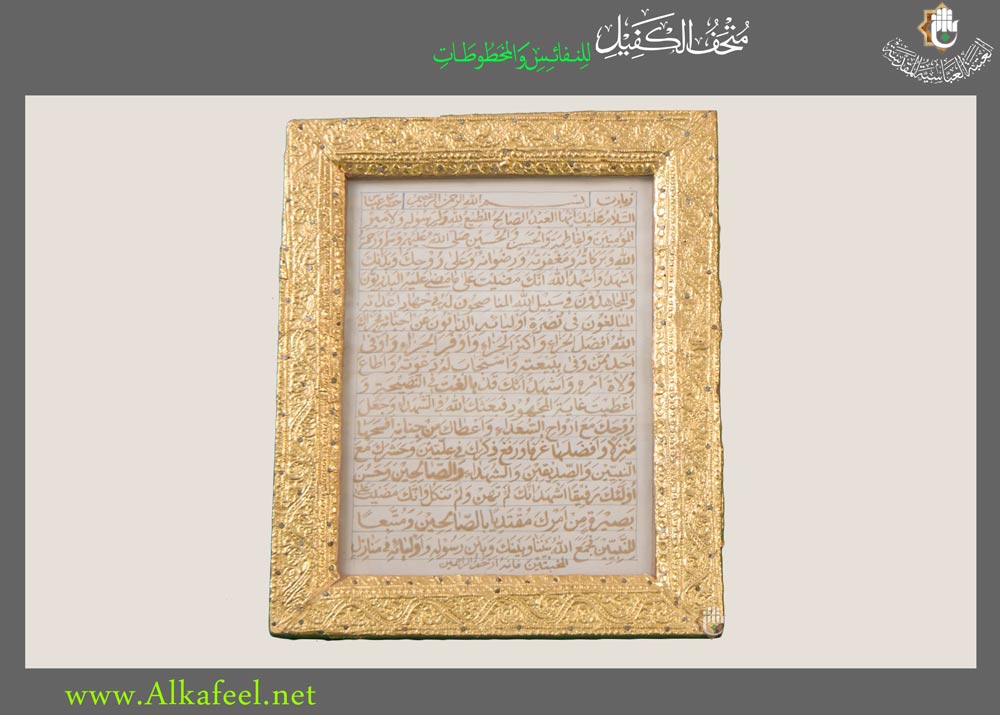 متحف الكفيل
للنفائس والمخطوطات
العتبة العباسية المقدسة
زيارت بسم الله الرحمن الرحيم حضرة عباس
السلام عليك ايها العبد الصالح المطيع لله ولرسوله ولامير
المؤمنين ولفاطمة والحسن والحسين صلى الله عليهم وسلم ورحمة
الله وبركاته ومغفرته ورضوانه وعلى روحك وبدنك
اشهد واشهد الله انك مضيت على ما مضى عليه البدريون
والمجاهدون في سبيل الله المناصحون له في جهاد اعدائه
المبالغون في نصرة اوليائه الذابون عن احبائه فجزاك
الله افضل الجزاء واكثر الجزاء واوفر الجزاء واوفى
احد ممن وفى ببيعته واستجاب له دعوته واطاع
ولاة امره واشهد انك قد بالغت في النصيحة و
اعطيت غاية المجهود فبعثك الله في الشهداء وجعل
روحك مع ارواح السعداء واعطاك من جنانه افسحها
منزلا وافضلها غرفا ورفع ذكرك في عليين وحشرك مع
النبيين والصديقين والشهداء والصالحين وحسن
اولئك رفيقا اشهد انك لم تهن ولم تنكل وانك مضيت على
بصيرة من امرك مقتديا بالصالحين ومتبعا
للنبيين فجمع الله بيننا وبينك وبين رسوله واوليائه في منازل
المخبتين فانه ارحم الراحمين
www.Alkafeel.net